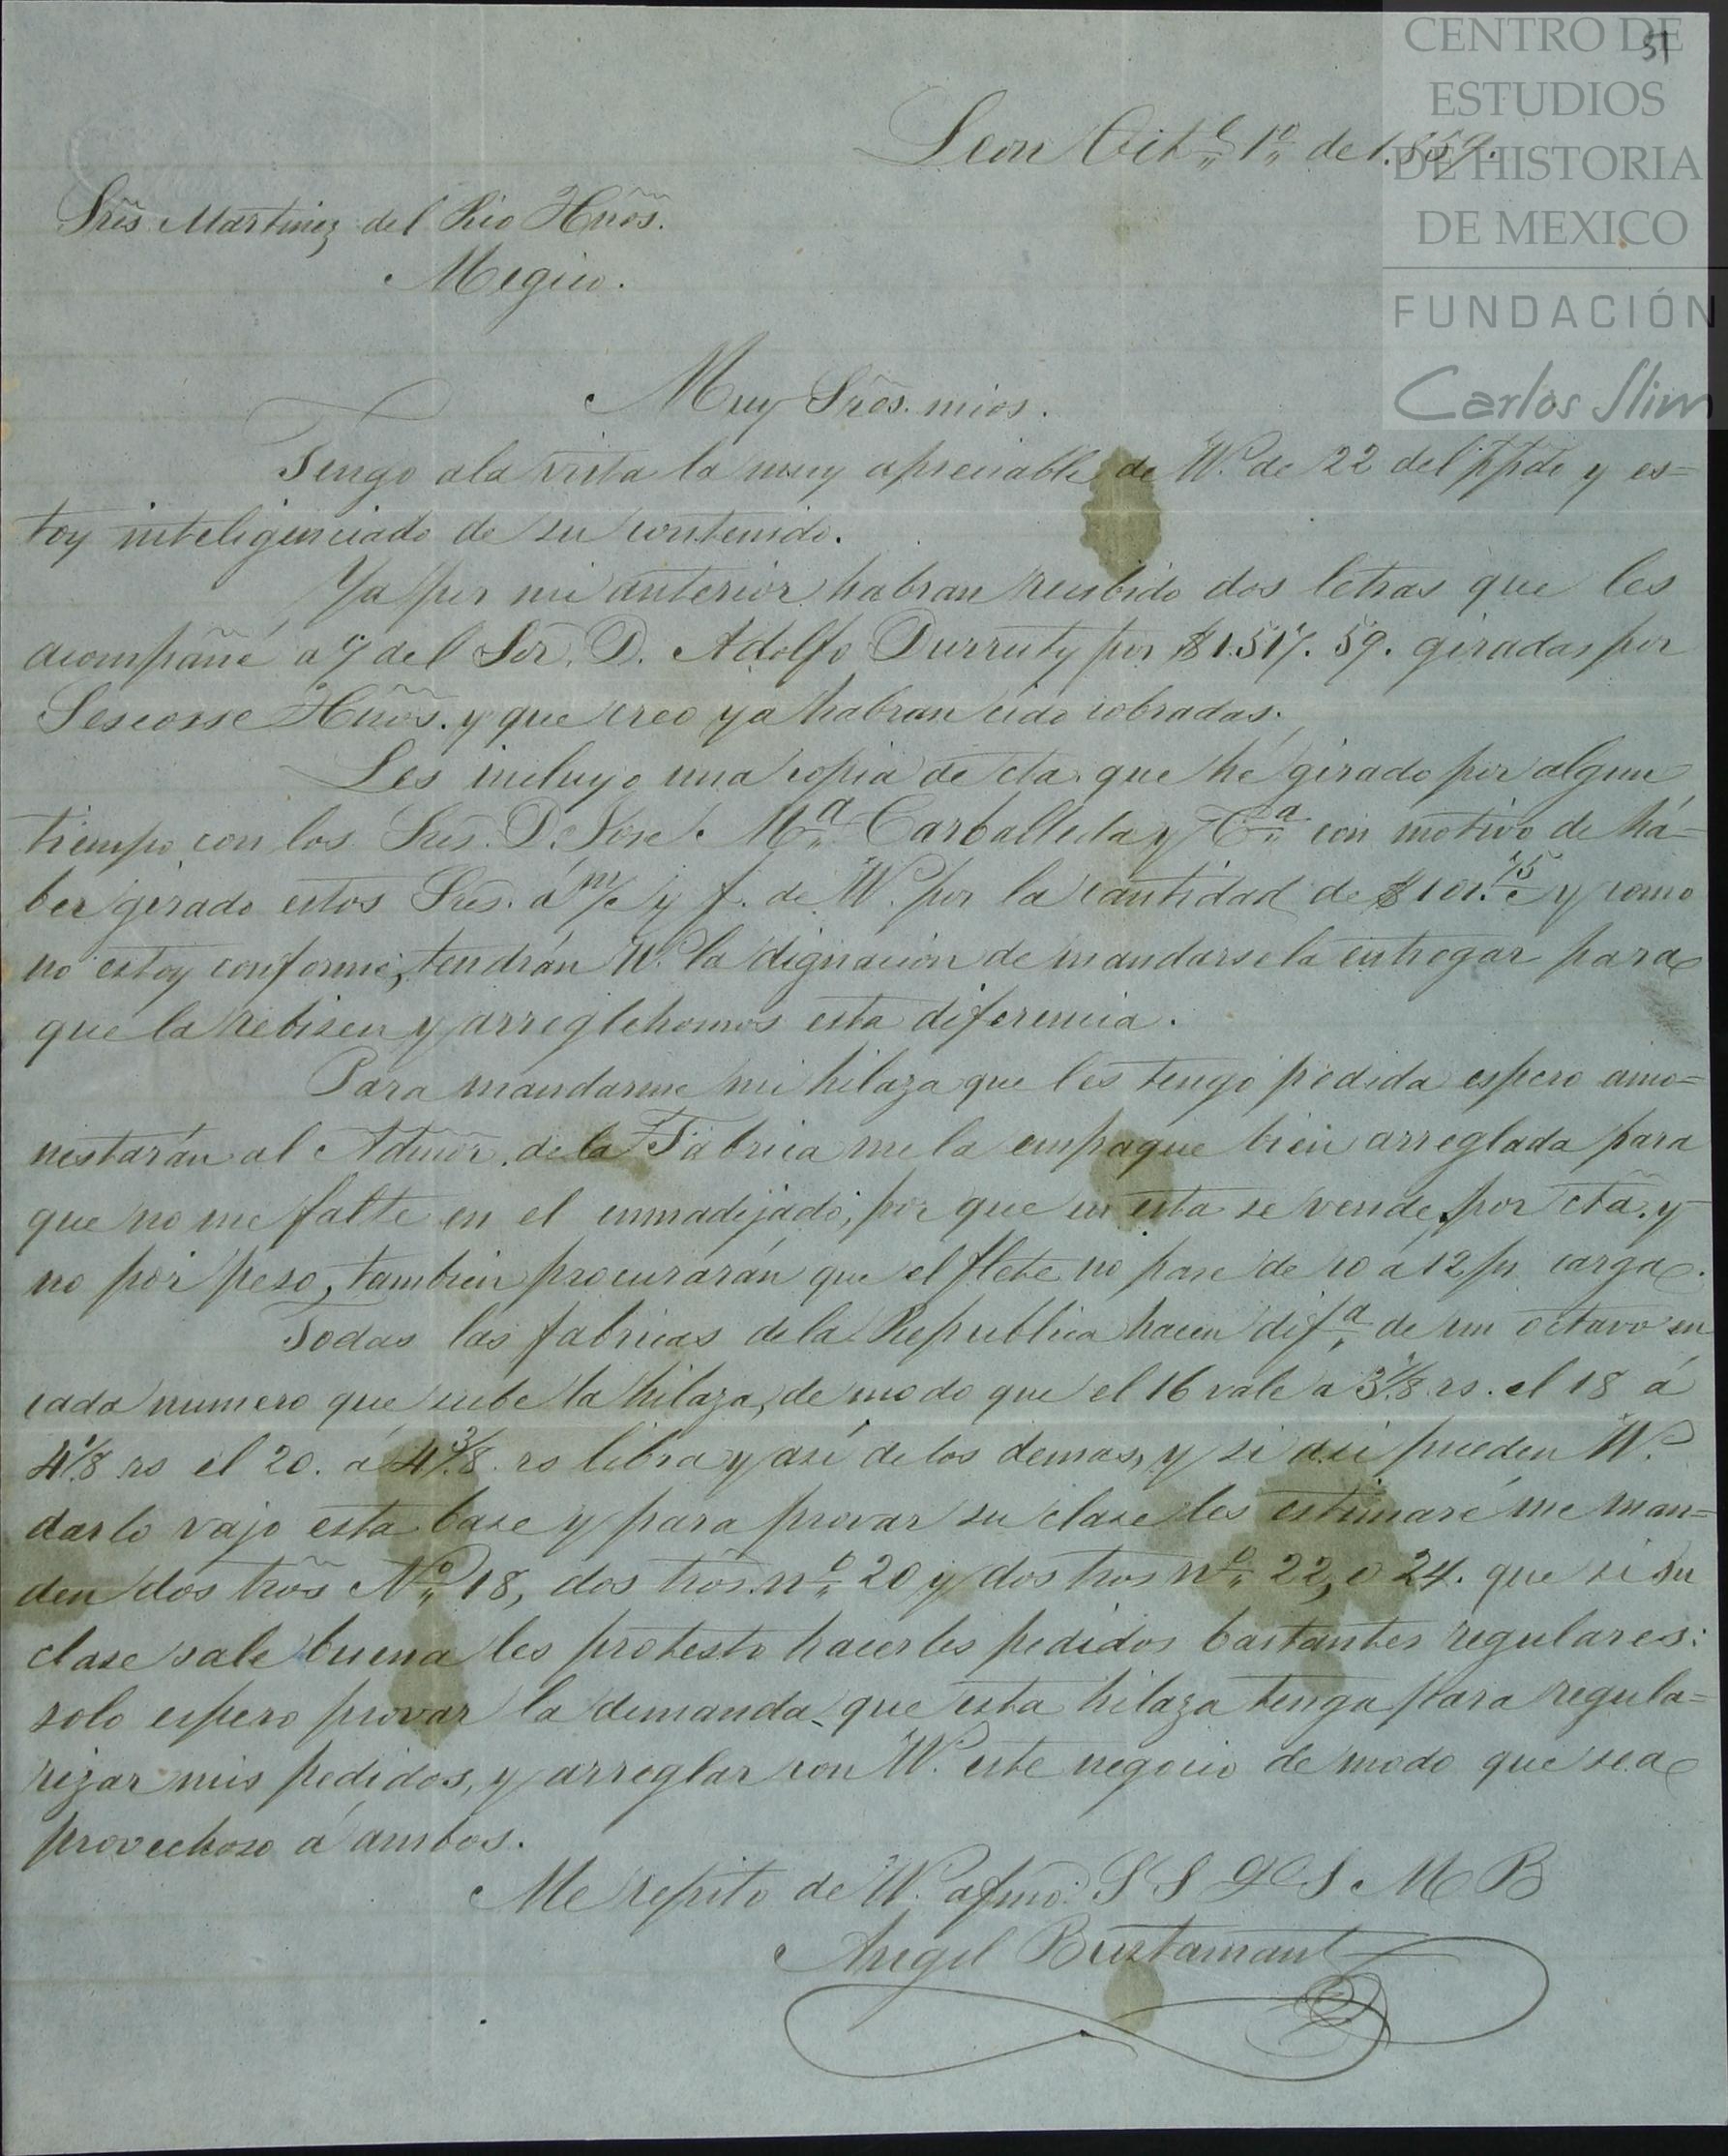 CENTRO DE
ESTUDIOS
DE HISTORIA
DE MEXICO
FUNDACIÓN
Carlos Slim
51
Leon Octe 1o de 1.859.
Sres Martinez del Rio Hños.
Megico.
Muy Sres. mios.
Tengo ala vista la muy apreciable de VV. de 22 del ppdo y es=
toy inteligenciado de su contenido.
Ya por mi anterior habran recibido dos letras que les
acompañé a/c del Sor. D. Adolfo Durruty por $1.517. 59. giradas por
Lescosse Hños. y que creo ya habran cido cobradas.
Les incluyo una copia de cta. que hé girado por algun
tiempo con los Sres. D. José Ma Carballeda y Ca con motivo de há=
ber girado estos Sres. á m/c y f. de VV. por la cantidad de $101. 75 c y como
no estoy conforme, tendrán VV. la dignacion de mandarsela entregar para
que la rebisen y arreglehomos esta diferencia.
Para mandarme mi hilaza que les tengo pedida espero amo=
nestarán al Admor. de la Fabrica me la empaque bien arreglada para
que no me falte en el enmadejado, por que en esta se vende por cta. y
no por peso, tambien procurarán que el flete no pase de 10 a 12 ps carga.
Todas las fabricas dela Republica hacen difa de un octavo en
cada numero que sube la hilaza, de modo que el 16 vale a 3 7/8 rs. el 18 á
4 1/8 rs el 20. á 4 3/8 rs libra y asi de los demas, y si asi pueden VV.
darlo vajo esta base y para provar su clase les estimaré me man=
den dos tros No 18, dos tros. no 20 y dos tros no 22, o 24. que si su
clase sale buena les protesto hacerles pedidos bastantes regulares:
solo espero provar la demanda que esta hilaza tenga para regula=
rizar mis pedidos, y arreglar con VV. este negocio de modo que sea
provechoso á ambos.
Me repito de VV. afmo. S S Q S M B
Angel Bustamante